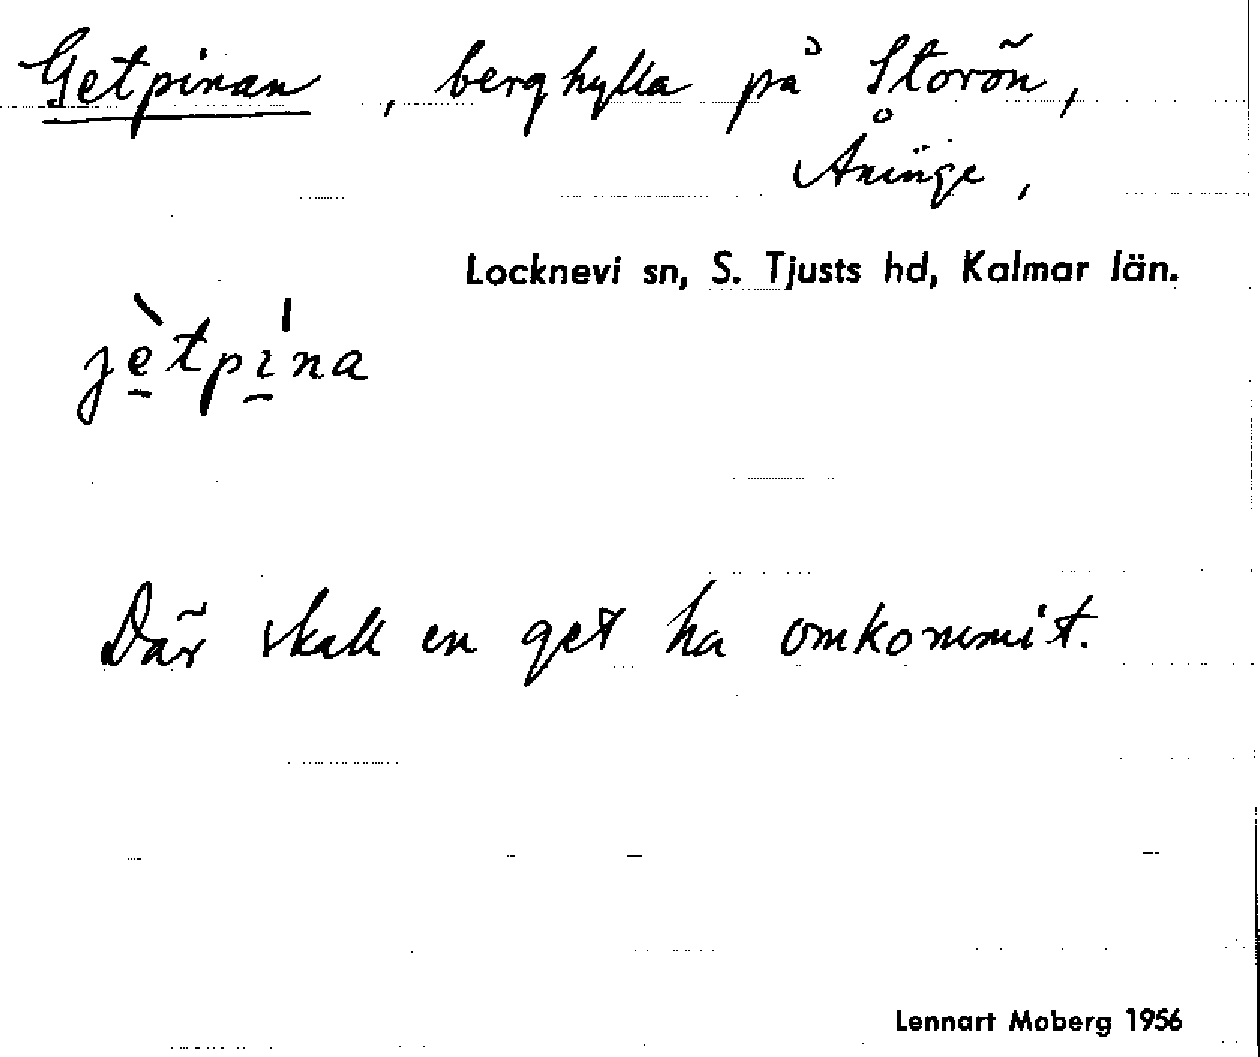 Getpinan, berghylla på Storön,
Åninge,
Locknevi sn, S. Tjusts hd, Kalmar län.
jè̱tpi̱̍na
Där skall en get ha omkommit.
Lennart Moberg 1956